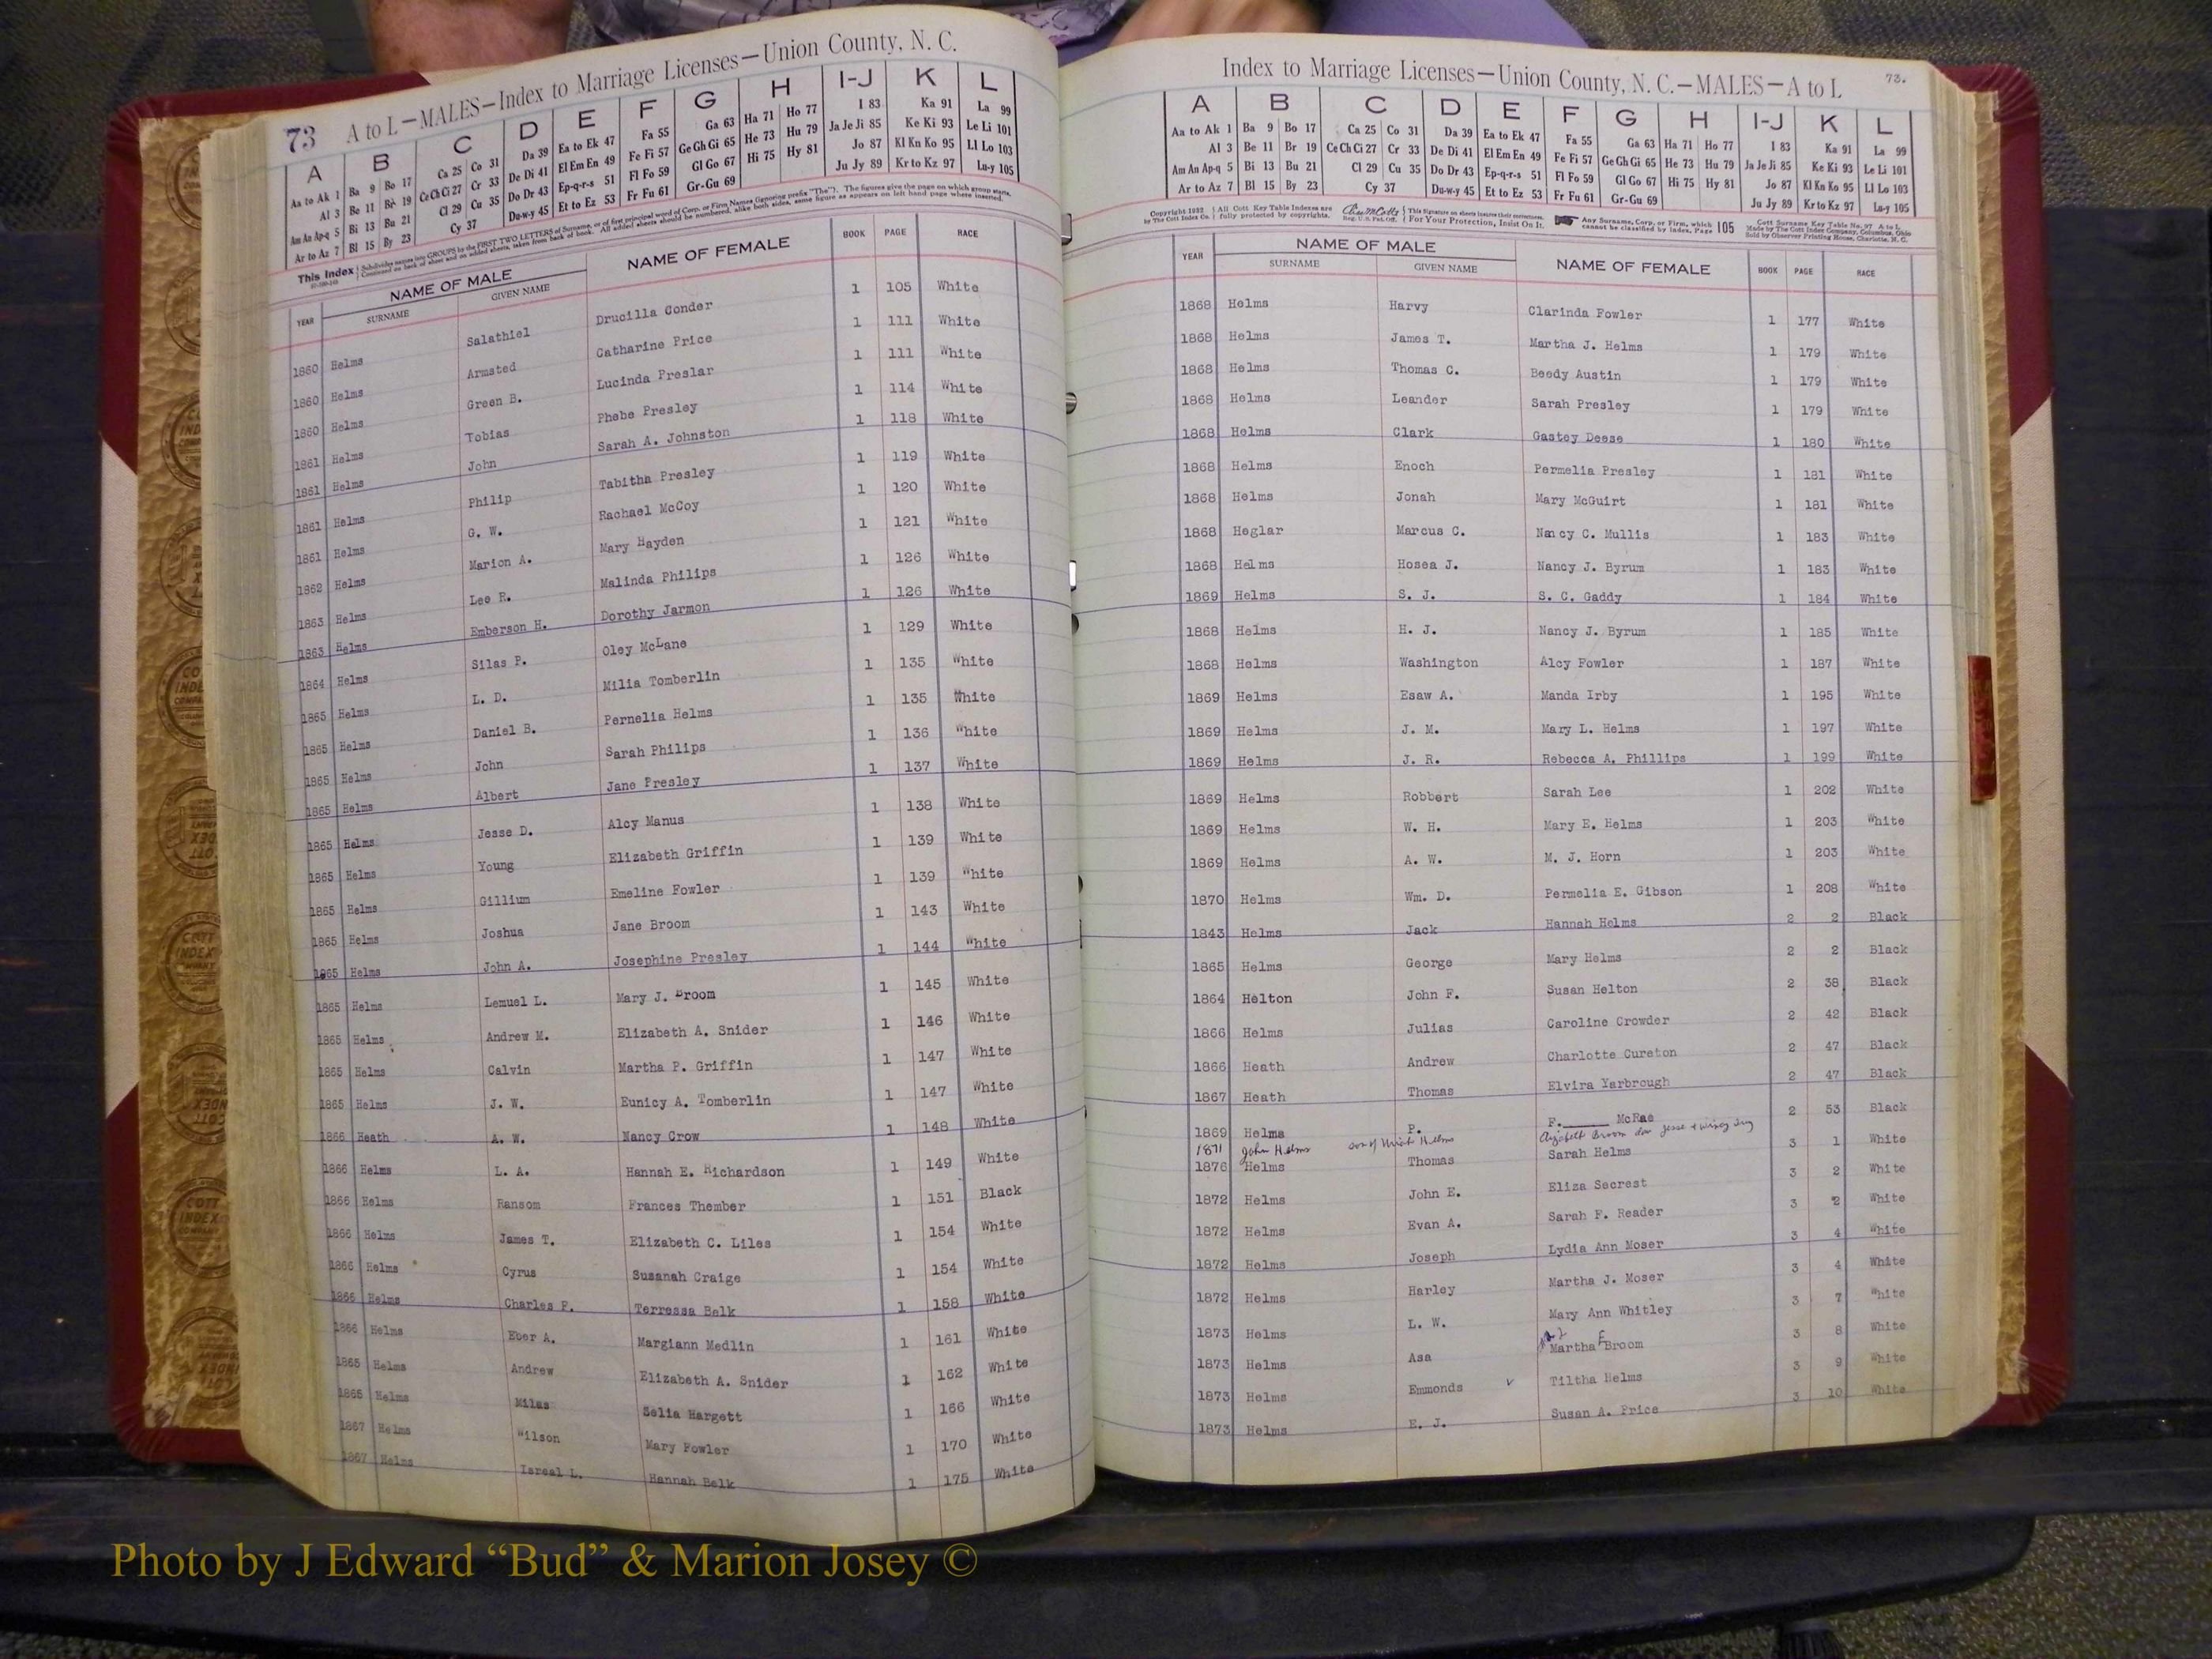 73 A to L—MALES—Index to Marriage Licenses—Union County, N. C.
A B C D E F G H I-J K L
Aa to Ak 1 Ba 9 Bo 17 Ca 25 Co 31 Da 39 Ea to Ek 47 Fa 55 Ga 63 Ha 71 Ho 77 I 83 Ka 91 La 99
Al 3 Be 11 Br 19 Ce Ch Ci 27 Cr 33 De Di 41 El Em En 49 Fe Fi 57 Ge Gh Gi 65 He 73 Hu 79 Ja Je Ji 85 Ke Ki 93 Le Li 101
Am An Ap-q 5 Bi 13 Bu 21 Cl 29 Cu 35 Do Dr 43 Ep-q-r-s 51 Fl Fo 59 Gl Go 67 Hi 75 Hy 81 Jo 87 Kl Kn Ko 95 Ll Lo 103
Ar to Az 7 Bl 15 By 23 Cy 37 Du-w-y 45 Et to Ez 53 Fr Fu 61 Gr-Gu 69 Ju Jy 89 Kr to Kz 97 Lu-y 105
This Index Subdivides names into GROUPS by the FIRST TWO LETTERS of Surname, or of first principal word of Corp. or Firm Names (ignoring prefix "The"). The figures give the page on which group starts.
Continued on back of sheet and on added sheets, taken from back of book. All added sheets should be numbered, alike both sides, same figure as appears on left hand page where inserted.
YEAR NAME OF MALE NAME OF FEMALE BOOK PAGE RACE
SURNAME GIVEN NAME
1860 Helms Salathiel Drucilla Conder 1 105 White
1860 Helms Armsted Catharine Price 1 111 White
1860 Helms Green B. Lucinda Preslar 1 111 White
1861 Helms Tobias Phebe Presley 1 114 White
1861 Helms John Sarah A. Johnston 1 118 White
1861 Helms Philip Tabitha Presley 1 119 White
1861 Helms G. W. Rachael McCoy 1 120 White
1862 Helms Marion A. Mary Hayden 1 121 White
1863 Helms Lee R. Malinda Philips 1 126 White
1863 Helms Emberson H. Dorothy Jarmon 1 126 White
1864 Helms Silas P. Oley McLane 1 129 White
1865 Helms L. D. Milia Tomberlin 1 135 White
1865 Helms Daniel B. Pernelia Helms 1 135 White
1865 Helms John Sarah Philips 1 136 White
1865 Helms Albert Jane Presley 1 137 White
1865 Helms Jesse D. Alcy Manus 1 138 White
1865 Helms Young Elizabeth Griffin 1 139 White
1865 Helms Gillium Emeline Fowler 1 139 White
1865 Helms Joshua Jane Broom 1 143 White
1865 Helms John A. Josephine Presley 1 144 White
1865 Helms Lemuel L. Mary J. Broom 1 145 White
1865 Helms Andrew M. Elizabeth A. Snider 1 146 White
1865 Helms Calvin Martha P. Griffin 1 147 White
1865 Helms J. W. Eunicy A. Tomberlin 1 147 White
1866 Heath A. W. Nancy Crow 1 148 White
1866 Helms L. A. Hannah E. Richardson 1 149 White
1866 Helms Ransom Frances Thember 1 151 Black
1866 Helms James T. Elizabeth C. Liles 1 154 White
1866 Helms Cyrus Susanah Craige 1 154 White
1866 Helms Charles F. Terressa Belk 1 158 White
1866 Helms Eber A. Margiann Medlin 1 161 White
1865 Helms Andrew Elizabeth A. Snider 1 162 White
1865 Helms Milas Selia Hargett 1 166 White
1867 Helms Wilson Mary Fowler 1 170 White
1867 Helms Isreal L. Hannah Belk 1 175 White
Index to Marriage Licenses—Union County, N. C.—MALES—A to L 73.
A B C D E F G H I-J K L
Aa to Ak 1 Ba 9 Bo 17 Ca 25 Co 31 Da 39 Ea to Ek 47 Fa 55 Ga 63 Ha 71 Ho 77 I 83 Ka 91 La 99
Al 3 Be 11 Br 19 Ce Ch Ci 27 Cr 33 De Di 41 El Em En 49 Fe Fi 57 Ge Gh Gi 65 He 73 Hu 79 Ja Je Ji 85 Ke Ki 93 Le Li 101
Am An Ap-q 5 Bi 13 Bu 21 Cl 29 Cu 35 Do Dr 43 Ep-q-r-s 51 Fl Fo 59 Gl Go 67 Hi 75 Hy 81 Jo 87 Kl Kn Ko 95 Ll Lo 103
Ar to Az 7 Bl 15 By 23 Cy 37 Du-w-y 45 Et to Ez 53 Fr Fu 61 Gr-Gu 69 Ju Jy 89 Kr to Kz 97 Lu-y 105
Copyright 1932 All Cott Key Table Indexes are This Signature on sheets insures their correctness. Any Surname, Corp. or Firm, which Cott Surname Key Table No. 97 A to L
by The Cott Index Co. fully protected by copyrights. Reg. U. S. Pat. Off. For Your Protection, Insist On It. cannot be classified by index, Page 105 Made by The Cott Index Company, Columbus, Ohio
Sold by Observer Printing House, Charlotte, N. C.
YEAR NAME OF MALE NAME OF FEMALE BOOK PAGE RACE
SURNAME GIVEN NAME
1868 Helms Harvy Clarinda Fowler 1 177 White
1868 Helms James T. Martha J. Helms 1 179 White
1868 Helms Thomas C. Beedy Austin 1 179 White
1868 Helms Leander Sarah Presley 1 179 White
1868 Helms Clark Gastey Deese 1 180 White
1868 Helms Enoch Permelia Presley 1 181 White
1868 Helms Jonah Mary McGuirt 1 181 White
1868 Heglar Marcus C. Nancy C. Mullis 1 183 White
1868 Helms Hosea J. Nancy J. Byrum 1 183 White
1869 Helms S. J. S. C. Gaddy 1 184 White
1868 Helms H. J. Nancy J. Byrum 1 185 White
1868 Helms Washington Alcy Fowler 1 187 White
1869 Helms Esaw A. Manda Irby 1 195 White
1869 Helms J. M. Mary L. Helms 1 197 White
1869 Helms J. R. Rebecca A. Phillips 1 199 White
1869 Helms Robbert Sarah Lee 1 202 White
1869 Helms W. H. Mary E. Helms 1 203 White
1869 Helms A. W. M. J. Horn 1 203 White
1870 Helms Wm. D. Permelia E. Gibson 1 208 White
1843 Helms Jack Hannah Helms 2 2 Black
1865 Helms George Mary Helms 2 2 Black
1864 Helton John F. Susan Helton 2 38 Black
1866 Helms Julias Caroline Crowder 2 42 Black
1866 Heath Andrew Charlotte Cureton 2 47 Black
1867 Heath Thomas Elvira Yarbrough 2 47 Black
1869 Helms P. F.____ McRae 2 53 Black
1871 John Helms son of Helms Broom Jesse
1876 Helms Thomas Sarah Helms 3 1 White
1872 Helms John E. Eliza Secrest 3 2 White
1872 Helms Evan A. Sarah F. Reader 3 2 White
1872 Helms Joseph Lydia Ann Moser 3 4 White
1872 Helms Harley Martha J. Moser 3 4 White
1873 Helms L. W. Mary Ann Whitley 3 7 White
1873 Helms Asa Martha E Broom 3 8 White
1873 Helms Emmonds v Tiltha Helms 3 9 White
1873 Helms E. J. Susan A. Price 3 10 White
Photo by J Edward “Bud” & Marion Josey ©